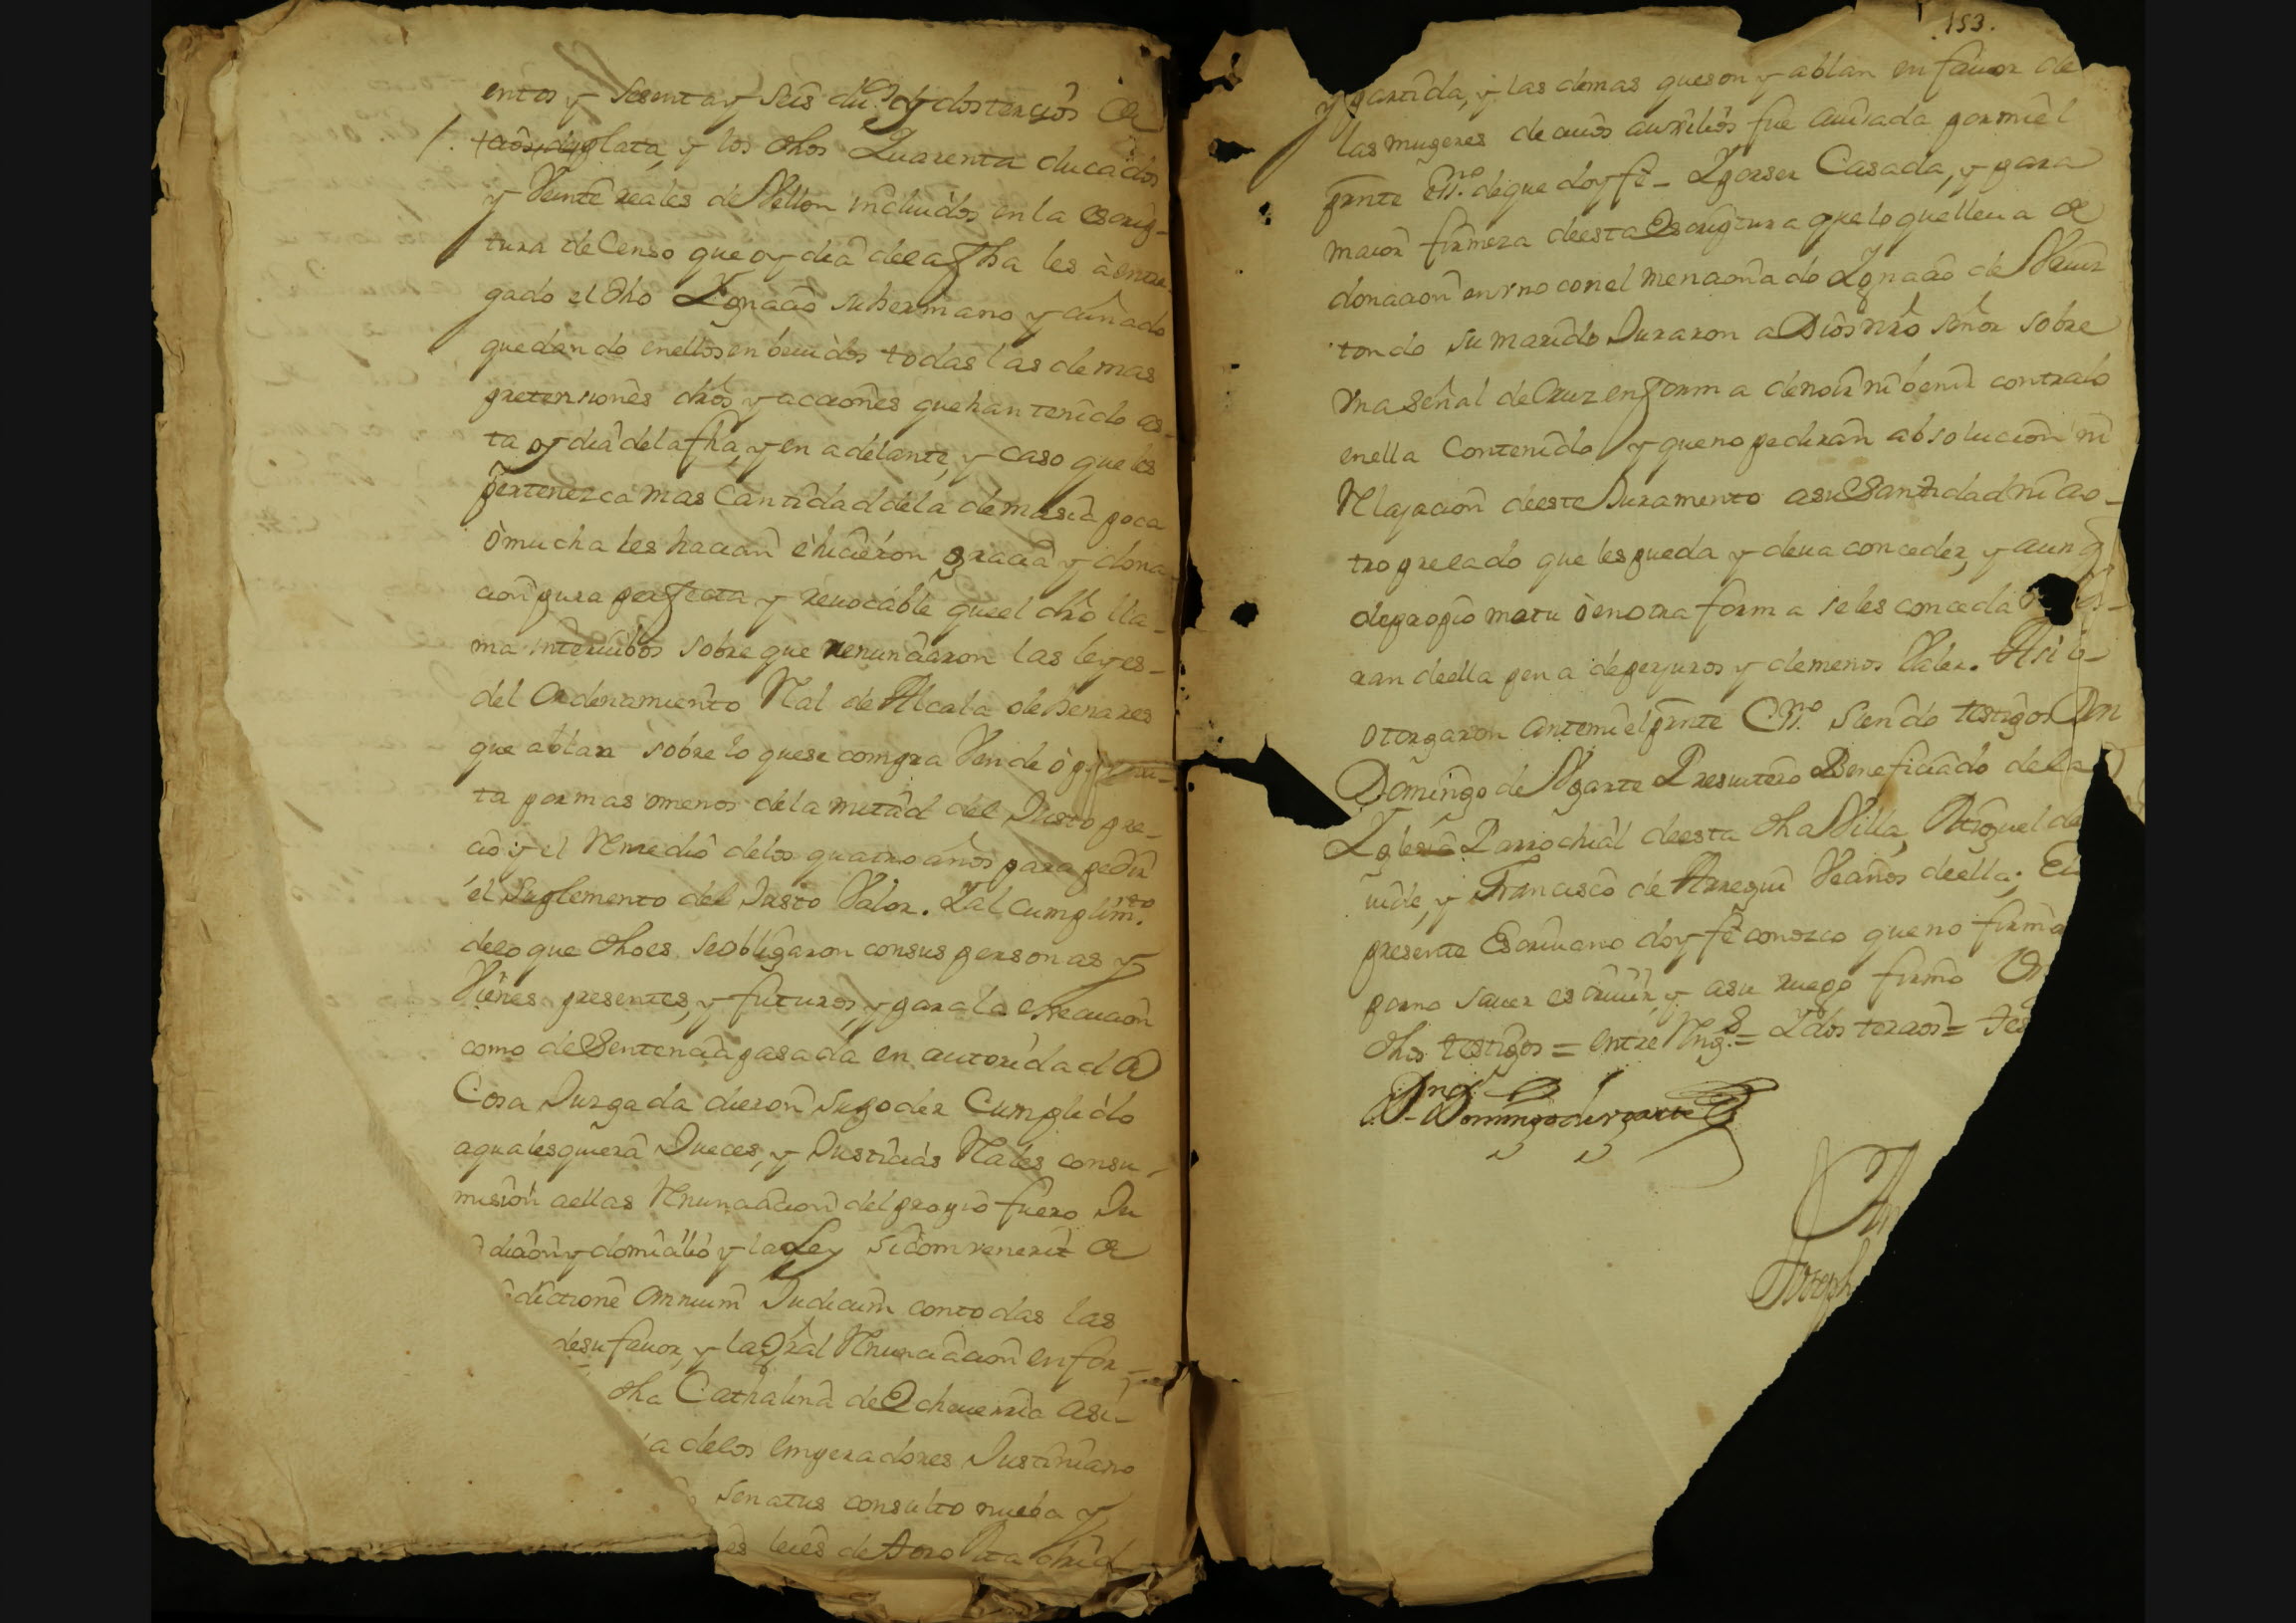 entos y Sesenta y Seis du.os y dos tercios de
plata, y los dhos Quarenta ducados
y Veinte reales de Vellon incluidos en la escrip-
tura de Censo que oy dia de la fha les à entre-
gado el dho Ygnacio su hermano y cuñado
quedando en ellos enbeuidos todas las demas
pretensiones dros y acciones que han tenido as-
ta oy dia de la fha, y en adelante, y caso que les
pertenezca mas Cantidad de la demasia poca
ò mucha les hacian è hicieron gracia y dona-
cion pura perfecta y reuocable que el dro lla-
ma interuibos sobre que renunciaron las leyes
del Ordenamiento Rl de Alcala de henares
que ablan sobre lo que se compra Vende ò permu-
ta por mas o menos de la mitad del Justo pre-
cio y el Remedio de los quatro años para pedir
el Suplemento del Justo Valor. Y al cumplim.to
de lo que dho es se obligaron con sus personas y
Vienes presentes, y futuros, y para la execucion
como de Sentencia pasada en autoridad de
Cosa Juzgada dieron su poder Cumplido
a qualesquiera Jueces, y Justicias Rales con su-
mision a ellas Renunciacion del propio fuero Ju
dicion y domicilio y la Ley si convenerit de
dictione omnium Judicum con todas las
de su fauor, y la Gral Renunciacion en for-
dha Cathalina de Echeuerria asi-
a de los emperadores Justiniano
Senatus consulto nueba y
es leies de toro
153.
y partida, y las demas que son y ablan en fauor de
las mugeres de cuios auxilios fue auisada por mi el
prnte Ess.no de que doy fê - Y por ser Casada, y para
maior firmeza de esta Escriptura que lo que lleua de
donacion en vno con el mencionado Ygnacio de
tondo su marido Juraron a Dios nro señor sobre
vna señal de Cruz en forma de no ir ni benir contra lo
en ella Contenido y que no pediran absolucion ni
Relajacion de este Juramento a su Santidad ni a o-
tro prelado que les pueda y deua conceder, y aun q
de propio motu ò en otra forma se les conceda
ran de ella pena de perjuros y de menos Valer. Asi lo
otorgaron ante mi el prnte Ess.no Siendo testigos Dn
Domingo de Vgarte Presuitero Beneficiado de la
Yglesia Parrochial de esta dha Villa, Miguel de
uide, y Francisco de Arregui Vecinos de ella; El
presente Escriuano doy fê conozco que no firmo
por no sauer escriuir, y a su ruego firmo
dhos testigos = entre Rng.s = Y dos tercios =
Dn Domingo de Vgarte
An
Joseph